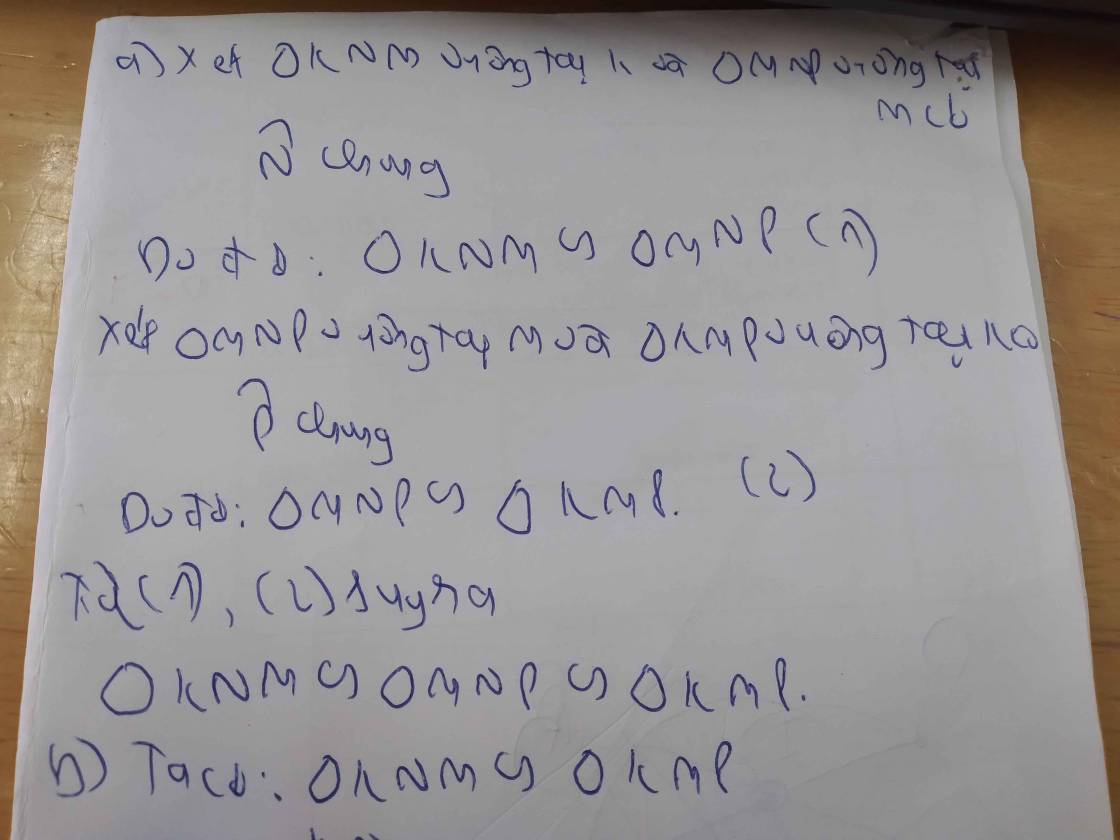 a) Xét ΔKNM vuông tại K và ΔMNP vuông tại
M có
N̂ chung
Do đó: ΔKNM ∽ ΔMNP (1)
Xét ΔMNP vuông tại M và ΔKMP vuông tại K có
P̂ chung
Do đó: ΔMNP ∽ ΔKMP. (2)
Từ (1), (2) suy ra
ΔKNM ∽ ΔMNP ∽ ΔKMP.
b) Ta có: ΔKNM ∽ ΔKMP